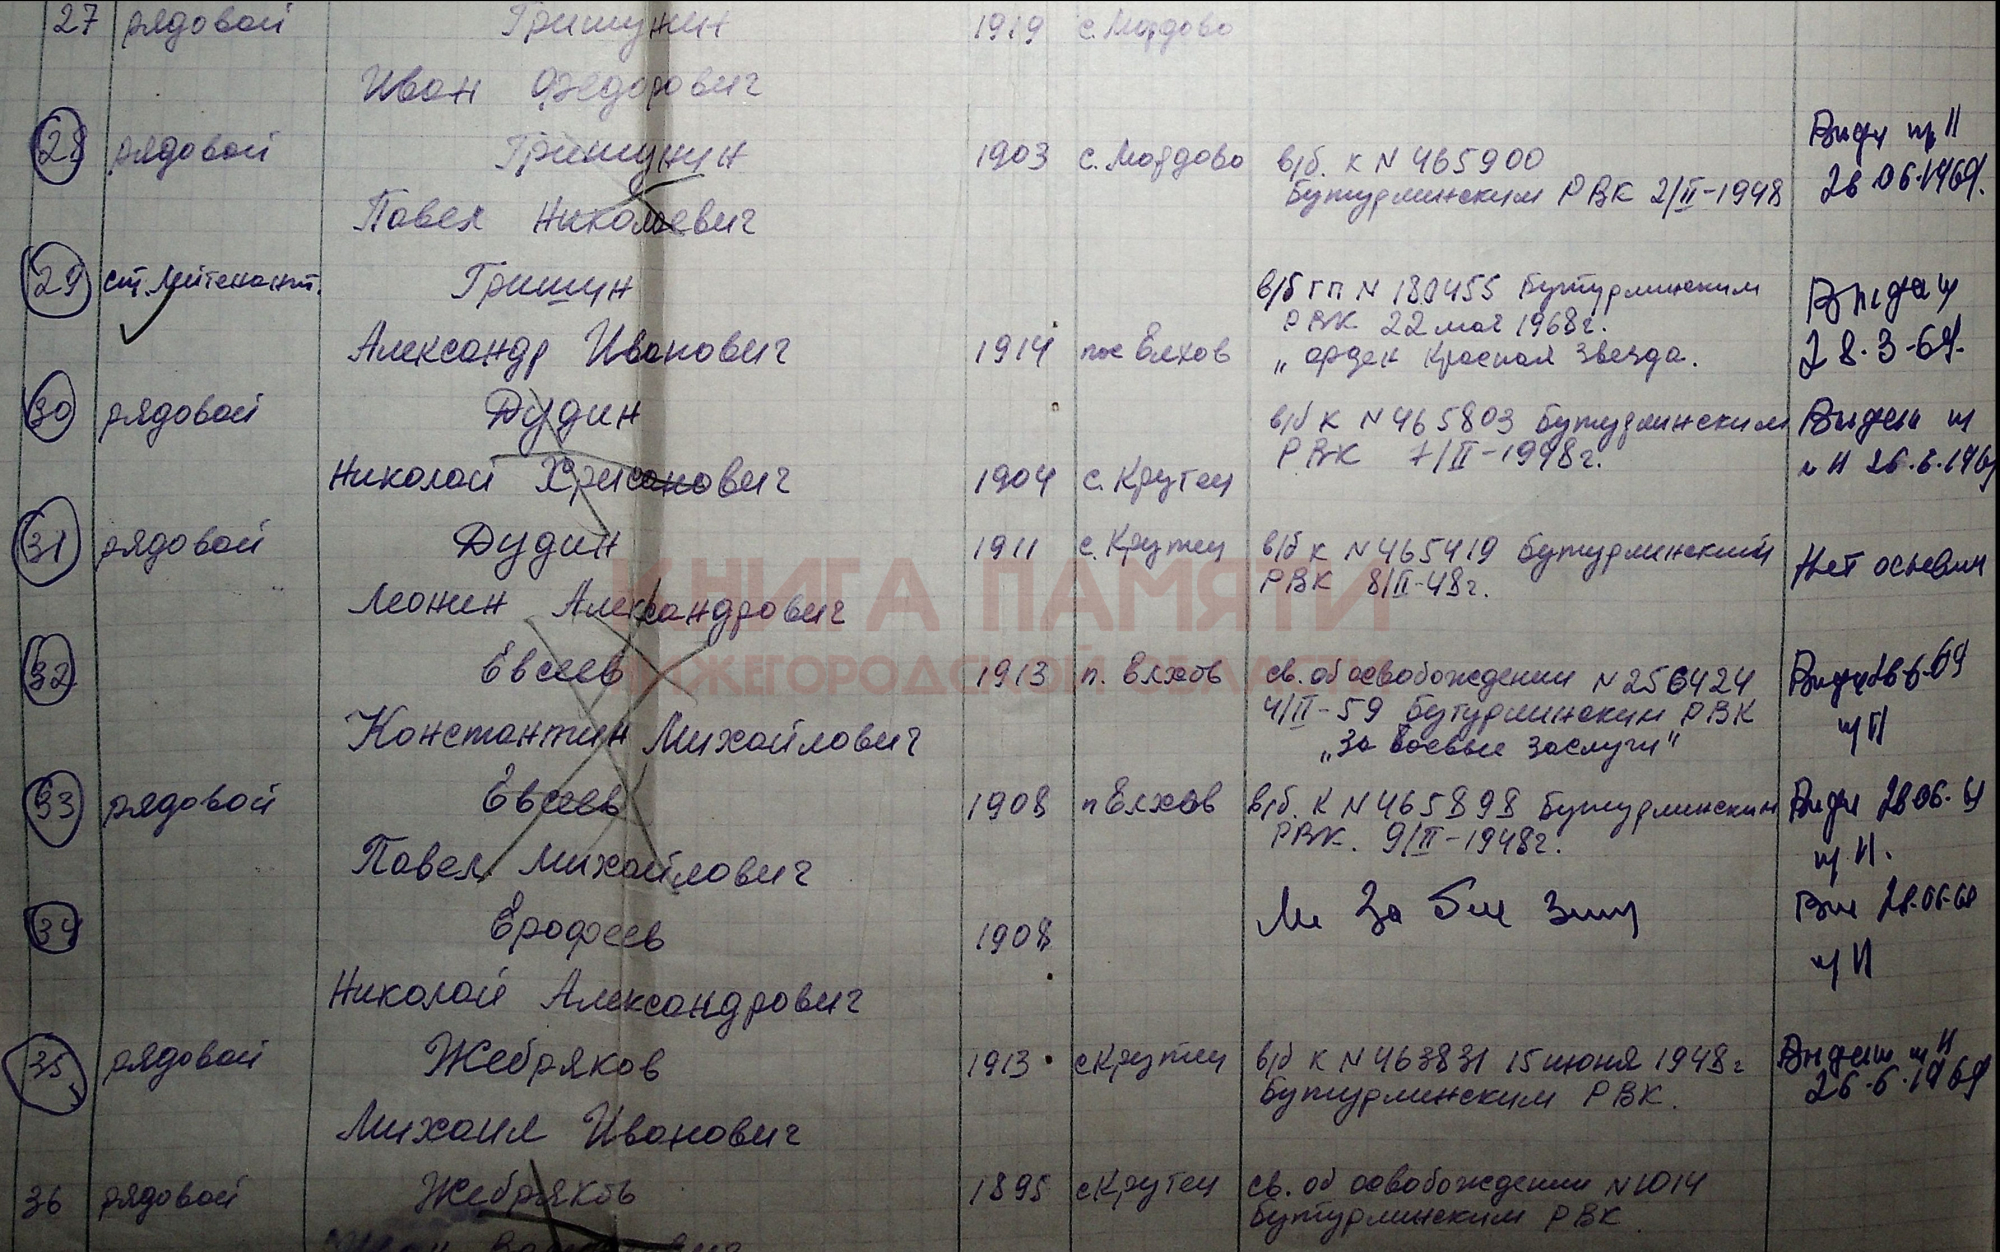 27 рядовой Гришунин 1919 с. Мордово
Иван Федорович
28 рядовой Гришунин 1903 с. Мордово в/б. к N 465900
Бутурлинским РВК 2/II-1948 28.06.1969.
Павел Николаевич
29 ст. лейтенант. Гришин в/б гп N 180455 Бутурлинским
РВК 22 мая 1968г.
Александр Иванович 1914 пос Елхов „ орден Красная Звезда. 28.3-69.
30 рядовой Дудин в/б к N 465803 Бутурлинским Выдан
РВК 7/II-1948г.
Николай Хрисанович 1904 с. Крутец 26.6.1969
31 рядовой Дудин 1911 с. Крутец в/б к N 465419 Бутурлинский Нет
РВК 8/II-48г.
КНИГА ПАМЯТИ
Леонин Александрович
НИЖЕГОРОДСКОЙ ОБЛАСТИ
32 Евсеев 1913 п. Елхов св. об освобождении N 256424
4/II-59 Бутурлинским РВК
Константин Михайлович „За боевые заслуги"
33 рядовой Евсеев 1908 п Елхов в/б. к N 465898 Бутурлинским
РВК. 9/II-1948г.
Павел Михайлович
34 Ерофеев 1908 За
Николай Александрович
35 рядовой Жебряков 1913 с Крутец в/б к N 463831 15 июня 1948г
Бутурлинским РВК. 26.6.1969
Михаил Иванович
36 рядовой Жебряков 1895 с Крутец св. об освобождении N 1014
Бутурлинским РВК